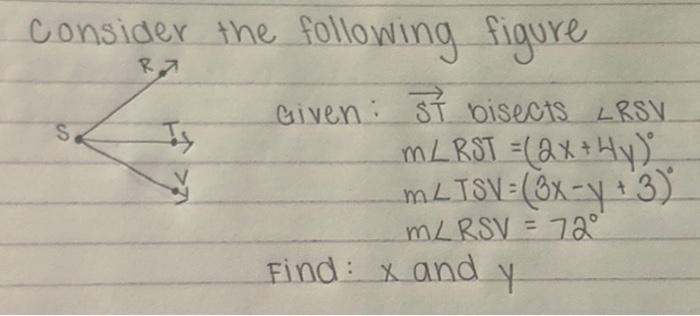 Consider the following figure
R
Given: \overrightarrow{ST} bisects ∠RSV
S
T
m∠RST = (2x+4y)°
V
m∠TSV = (3x-y+3)°
m∠RSV = 72°
Find: x and y